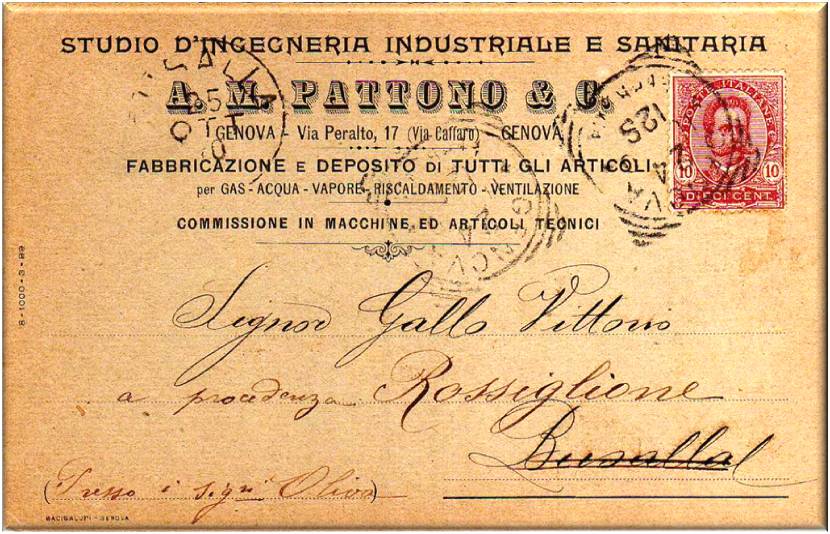 STUDIO D'INGEGNERIA INDUSTRIALE E SANITARIA
A. M. PATTONO & C.
GENOVA - Via Peralto, 17 (Via Caffaro) - GENOVA
FABBRICAZIONE E DEPOSITO DI TUTTI GLI ARTICOLI
per GAS - ACQUA - VAPORE - RISCALDAMENTO - VENTILAZIONE
COMMISSIONE IN MACCHINE ED ARTICOLI TECNICI
POSTE ITALIANE
10 10
DIECI CENT.
BUSALLA
25
OTT
GENOVA
24
12S
8-1000-3-99
Signor Gallo Vittorio
a procedenza Rossiglione
Busalla
(Presso i sigri Oliva)